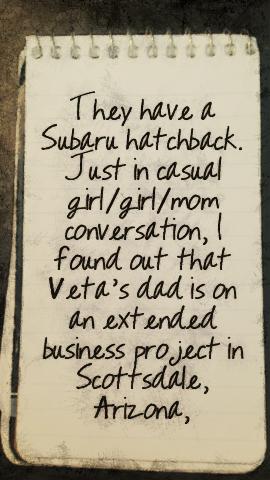 They have a
Subaru hatchback.
Just in casual
girl/girl/mom
conversation, I
found out that
Veta's dad is on
an extended
business project in
Scottsdale,
Arizona,